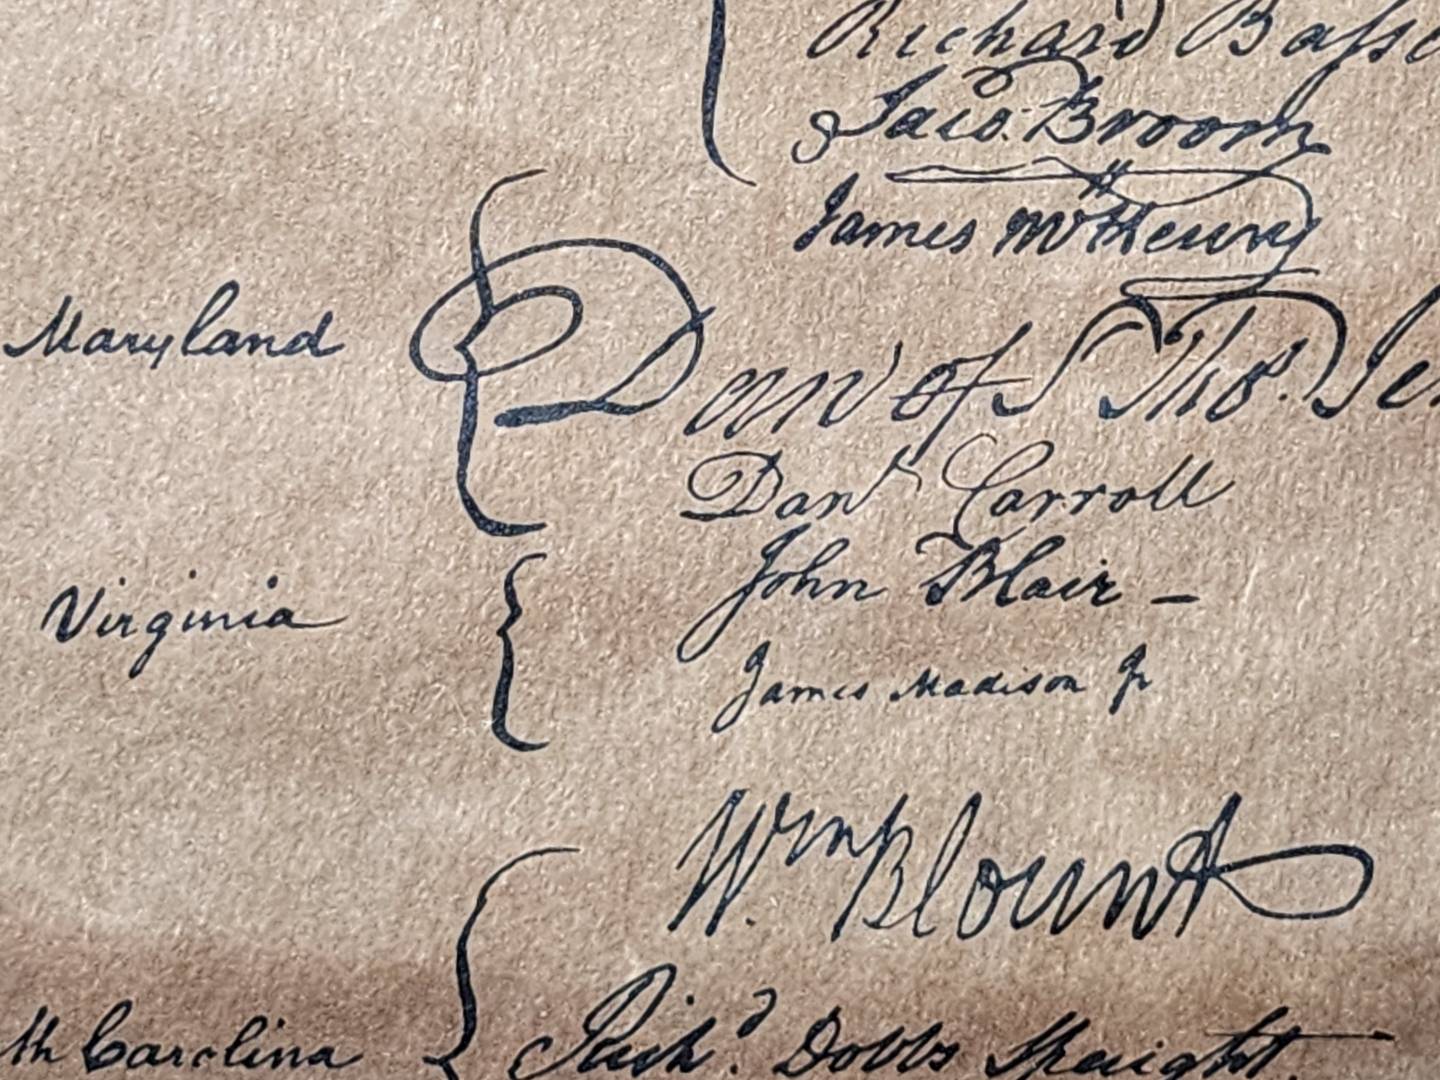 Richard Basse
Jaco: Broom
James McHenry
Maryland
Dan of St Thos. Je
Danl Carroll
John Blair –
Virginia
James Madison Jr
Wm Blount
th Carolina
Richd. Dobbs Spaight.